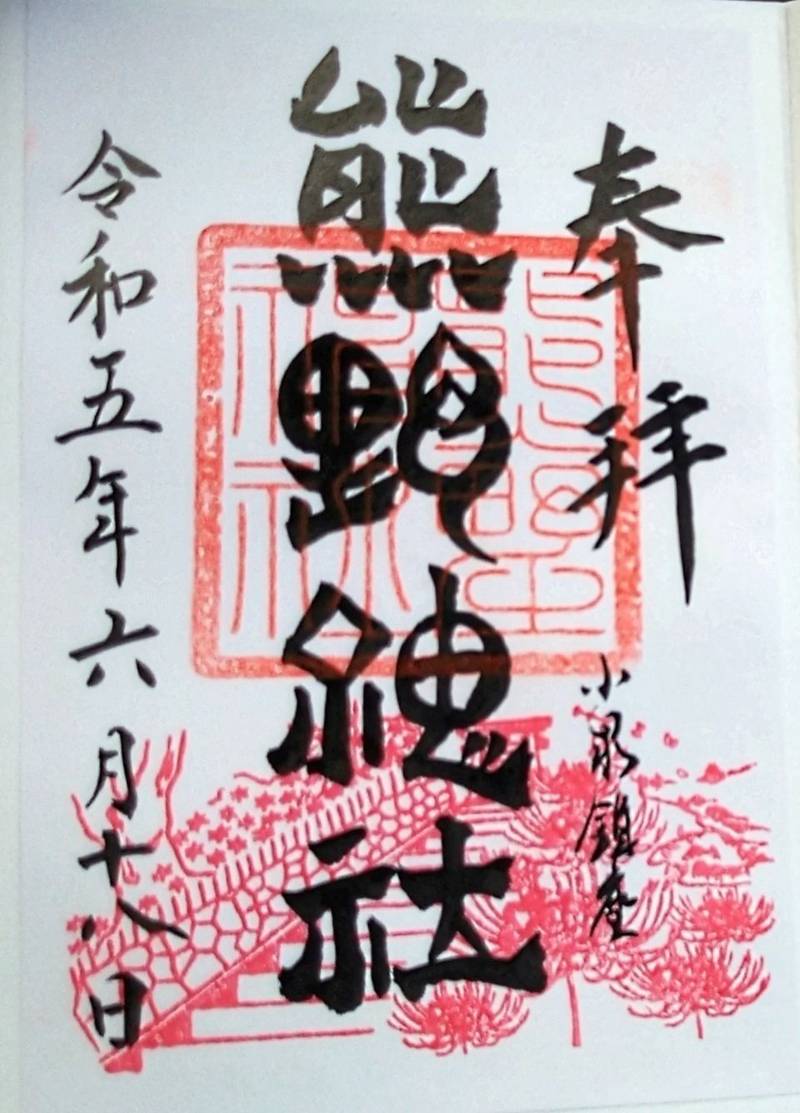 奉拝
小泉鎮座
熊野總社
令和五年六月十八日